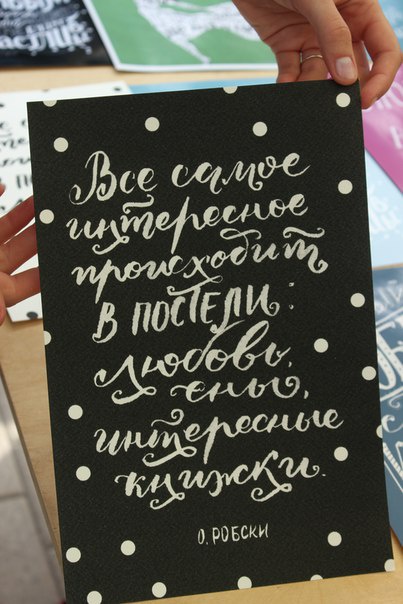 Все самое
интересное
происходит
в постели:
любовь,
сны,
интересные
книжки.
О. РОБСКИ